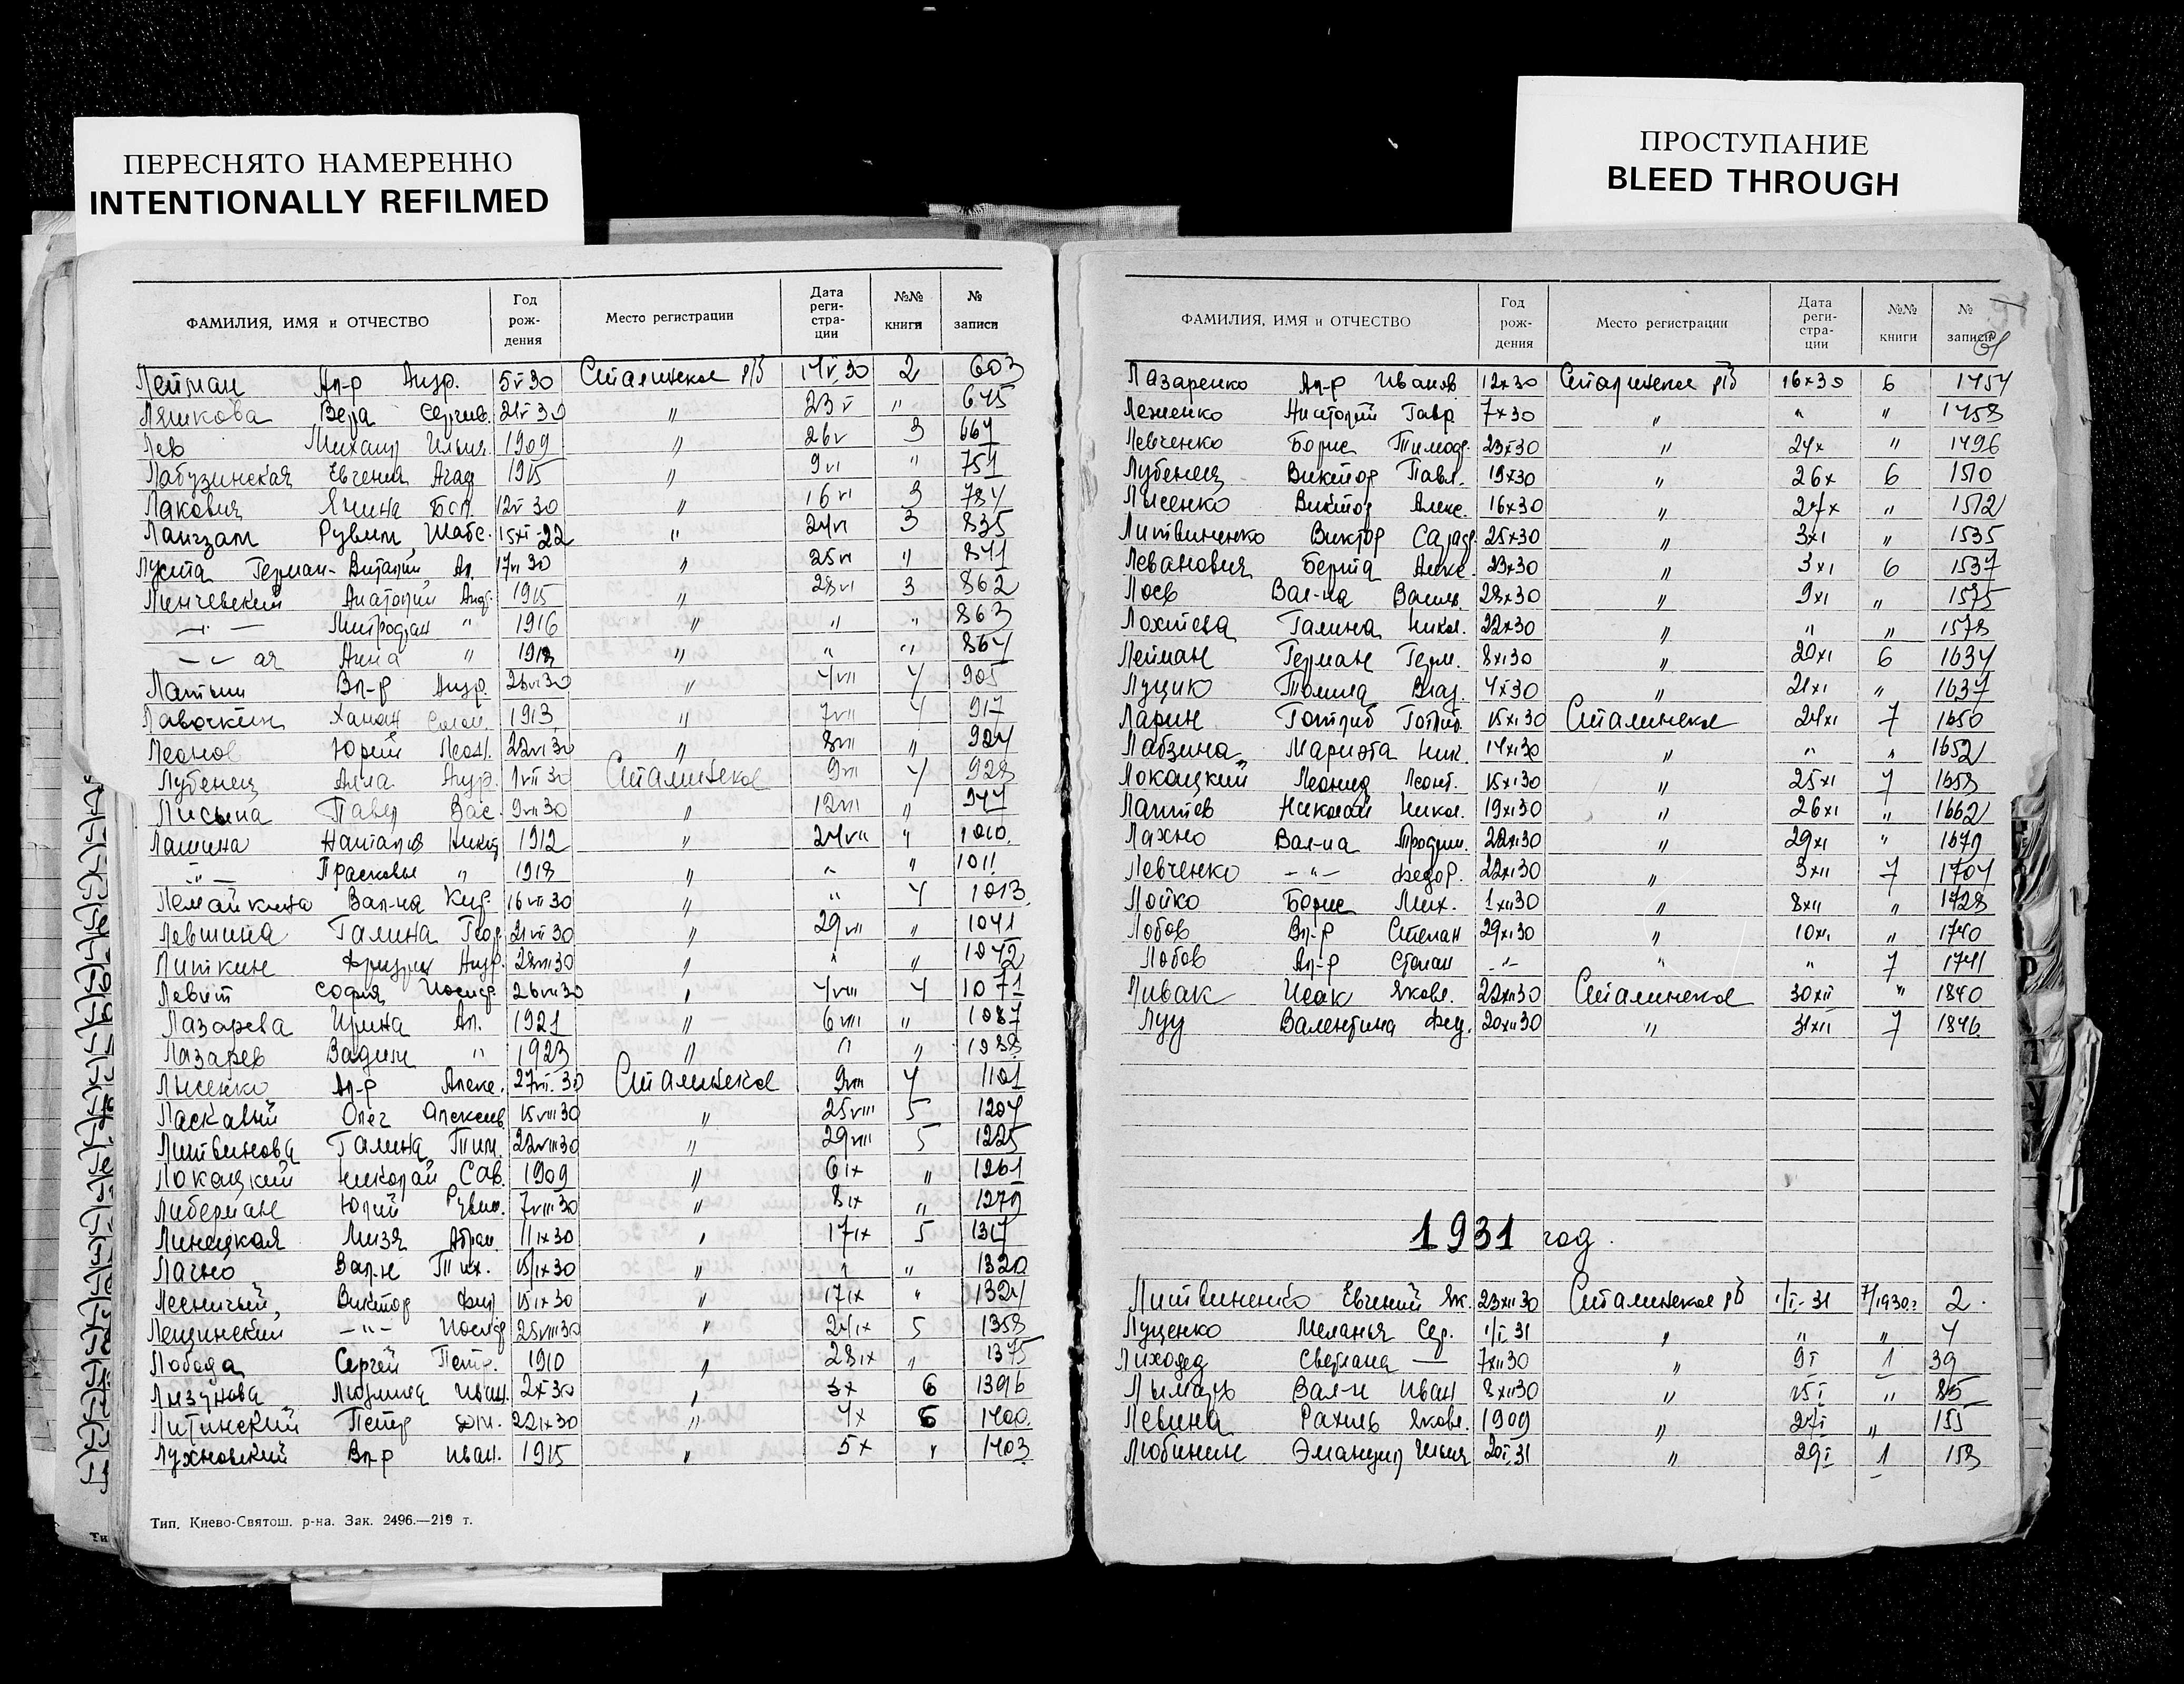 ПЕРЕСНЯТО НАМЕРЕННО
INTENTIONALLY REFILMED
ПРОСТУПАНИЕ
BLEED THROUGH
ФАМИЛИЯ, ИМЯ и ОТЧЕСТВО Год рождения Место регистрации Дата регистрации №№ книги № записи
Лейман Ал-р Андр. 5 V 30 Сталинское р/б 14 V 30 2 603
Ляшкова Вера Сергеев. 21 V 30 〃 23 V 〃 645
Лев Михаил Ильич. 1909 〃 26 V 3 667
Лабузинская Евгения Агад 1915 〃 9 VI 〃 751
Лакович Янина Бол. 12 V 30 〃 16 VI 3 784
Лангзам Рувим Шабс. 15 XI-22 〃 24 VI 3 835
Луста Герман-Виталий Ал. 17 VI 30 〃 25 VI 〃 841
Линчевский Анатолий Анд. 1915 〃 28 VI 3 862
—〃— Митрофан 〃 1916 〃 〃 〃 863
—〃— ая Анна 〃 1918 〃 〃 〃 864
Латыш Вл-р Андр. 26 VI 30 〃 4 VII 4 905
Лавочкин Ханан Солом. 1913 〃 7 VII 4 917
Леонов Юрий Леон. 22 VI 30 〃 8 VII 〃 924
Лубенец Алла Андр. 1 VII 30 Сталинское 9 VII 4 928
Лисына Павел Вас. 9 VII 30 〃 12 VII 〃 947
Лашина Наталия Никит 1912 〃 24 VII 〃 1010.
—〃— Прасковья 〃 1918 〃 〃 〃 1011
Лемайкина Вал-на Кир. 16 VII 30 〃 〃 4 1013
Левшина Галина Геор. 21 VII 30 〃 29 VII 〃 1041
Литкин Фридрих Андр. 28 VII 30 〃 〃 〃 1042
Левит София Иосиф. 26 VII 30 〃 4 VIII 4 1071
Лазарева Ирина Ал. 1921 〃 6 VIII 〃 1087
Лазарев Вадим 〃 1923 〃 〃 〃 1088
Лысенко Ал-р Алекс. 27 VII 30 Сталинское 9 VIII 4 1101
Ласкавый Олег Алексеев. 15 VIII 30 〃 25 VIII 5 1204
Литвинова Галина Тим. 22 VIII 30 〃 29 VIII 5 1225
Локацкий Николай Сав. 1909 〃 6 IX 〃 1261
Либерман Юлий Рувим. 7 VIII 30 〃 8 IX 〃 1279
Линецкая Лизя Абрам. 11 IX 30 〃 17 IX 5 1317
Лагно Вал-н Тих. 15/IX 30 〃 〃 〃 1320
Лесничий, Виктор Фил 15 IX 30 〃 17 IX 〃 1324
Лещинский —〃— Иосиф 25 VIII 30 〃 24 IX 5 1358
Лобода Сергей Петр. 1910 〃 28 IX 〃 1375
Лизунова Людмила Иван. 2 X 30 〃 3 X 6 1396
Литинский Петр Дм. 22 IX 30 〃 4 X 6 1400.
Лухновский Вл-р Иван. 1915 〃 5 X 〃 1403
Тип. Киево-Святош. р-на. Зак. 2496.—219 т.
ФАМИЛИЯ, ИМЯ и ОТЧЕСТВО Год рождения Место регистрации Дата регистрации №№ книги № записи
Лазаренко Ал-р Иванов. 12 X 30 Сталинское р/б 16 X 30 6 1454
Леженко Анатолий Гавр. 7 X 30 〃 〃 〃 1458
Левченко Борис Тимоф. 23 X 30 〃 24 X 〃 1496
Лубенец Виктор Павл. 19 X 30 〃 26 X 6 1510
Лысенко Виктор Алекс. 16 X 30 〃 27 X 〃 1512
Литвиненко Виктор 25 X 30 〃 3 XI 〃 1535
Леванович Берта Алекс. 23 X 30 〃 3 XI 6 1537
Лоев Вал-на Василь. 28 X 30 〃 9 XI 〃 1575
Лохтева Галина Никол. 22 X 30 〃 〃 〃 1578
Лейман Герман Герм. 8 XI 30 〃 20 XI 6 1634
Луцик Томила Влад. 4 X 30 〃 21 XI 〃 1637
Ларин Готлиб Готлиб. 15 XI 30 Сталинское 24 XI 7 1650
Лабзина Мариэта Ник. 14 XI 30 〃 〃 〃 1652
Локацкий Леонид Леонт. 15 XI 30 〃 25 XI 7 1658
Лаптев Николай Никол. 19 XI 30 〃 26 XI 〃 1662
Лахно Вал-на Трофим. 22 XI 30 〃 29 XI 〃 1679
Левченко —〃— Федор. 22 XI 30 〃 3 XII 7 1704
Лойко Борис Мих. 1 XII 30 〃 8 XII 〃 1728
Лобов Вл-р Степан 29 XI 30 〃 10 XII 〃 1740
Лобов Ал-р Степан —〃— 〃 〃 7 1741
Ливак Исак Яковл. 22 XII 30 Сталинское 30 XII 〃 1840
Луц Валентина Фед. 20 XII 30 〃 31 XII 7 1846
1931 год.
Литвиненко Евгений Як. 23 XII 30 Сталинское р/б 1/I-31 7/1930г. 2.
Луценко Меланья Сер. 1/I 31 〃 〃 〃 4
Лиходед Светлана — 7 XII 30 〃 9 I 1 39
Лымарь Вал-н Иван 8 XII 30 〃 15 I 〃 85
Левина Рахиль Яковл. 1909 〃 27 I 〃 155
Любинин Эмануил Ильич 20 I 31 〃 29 I 1 158